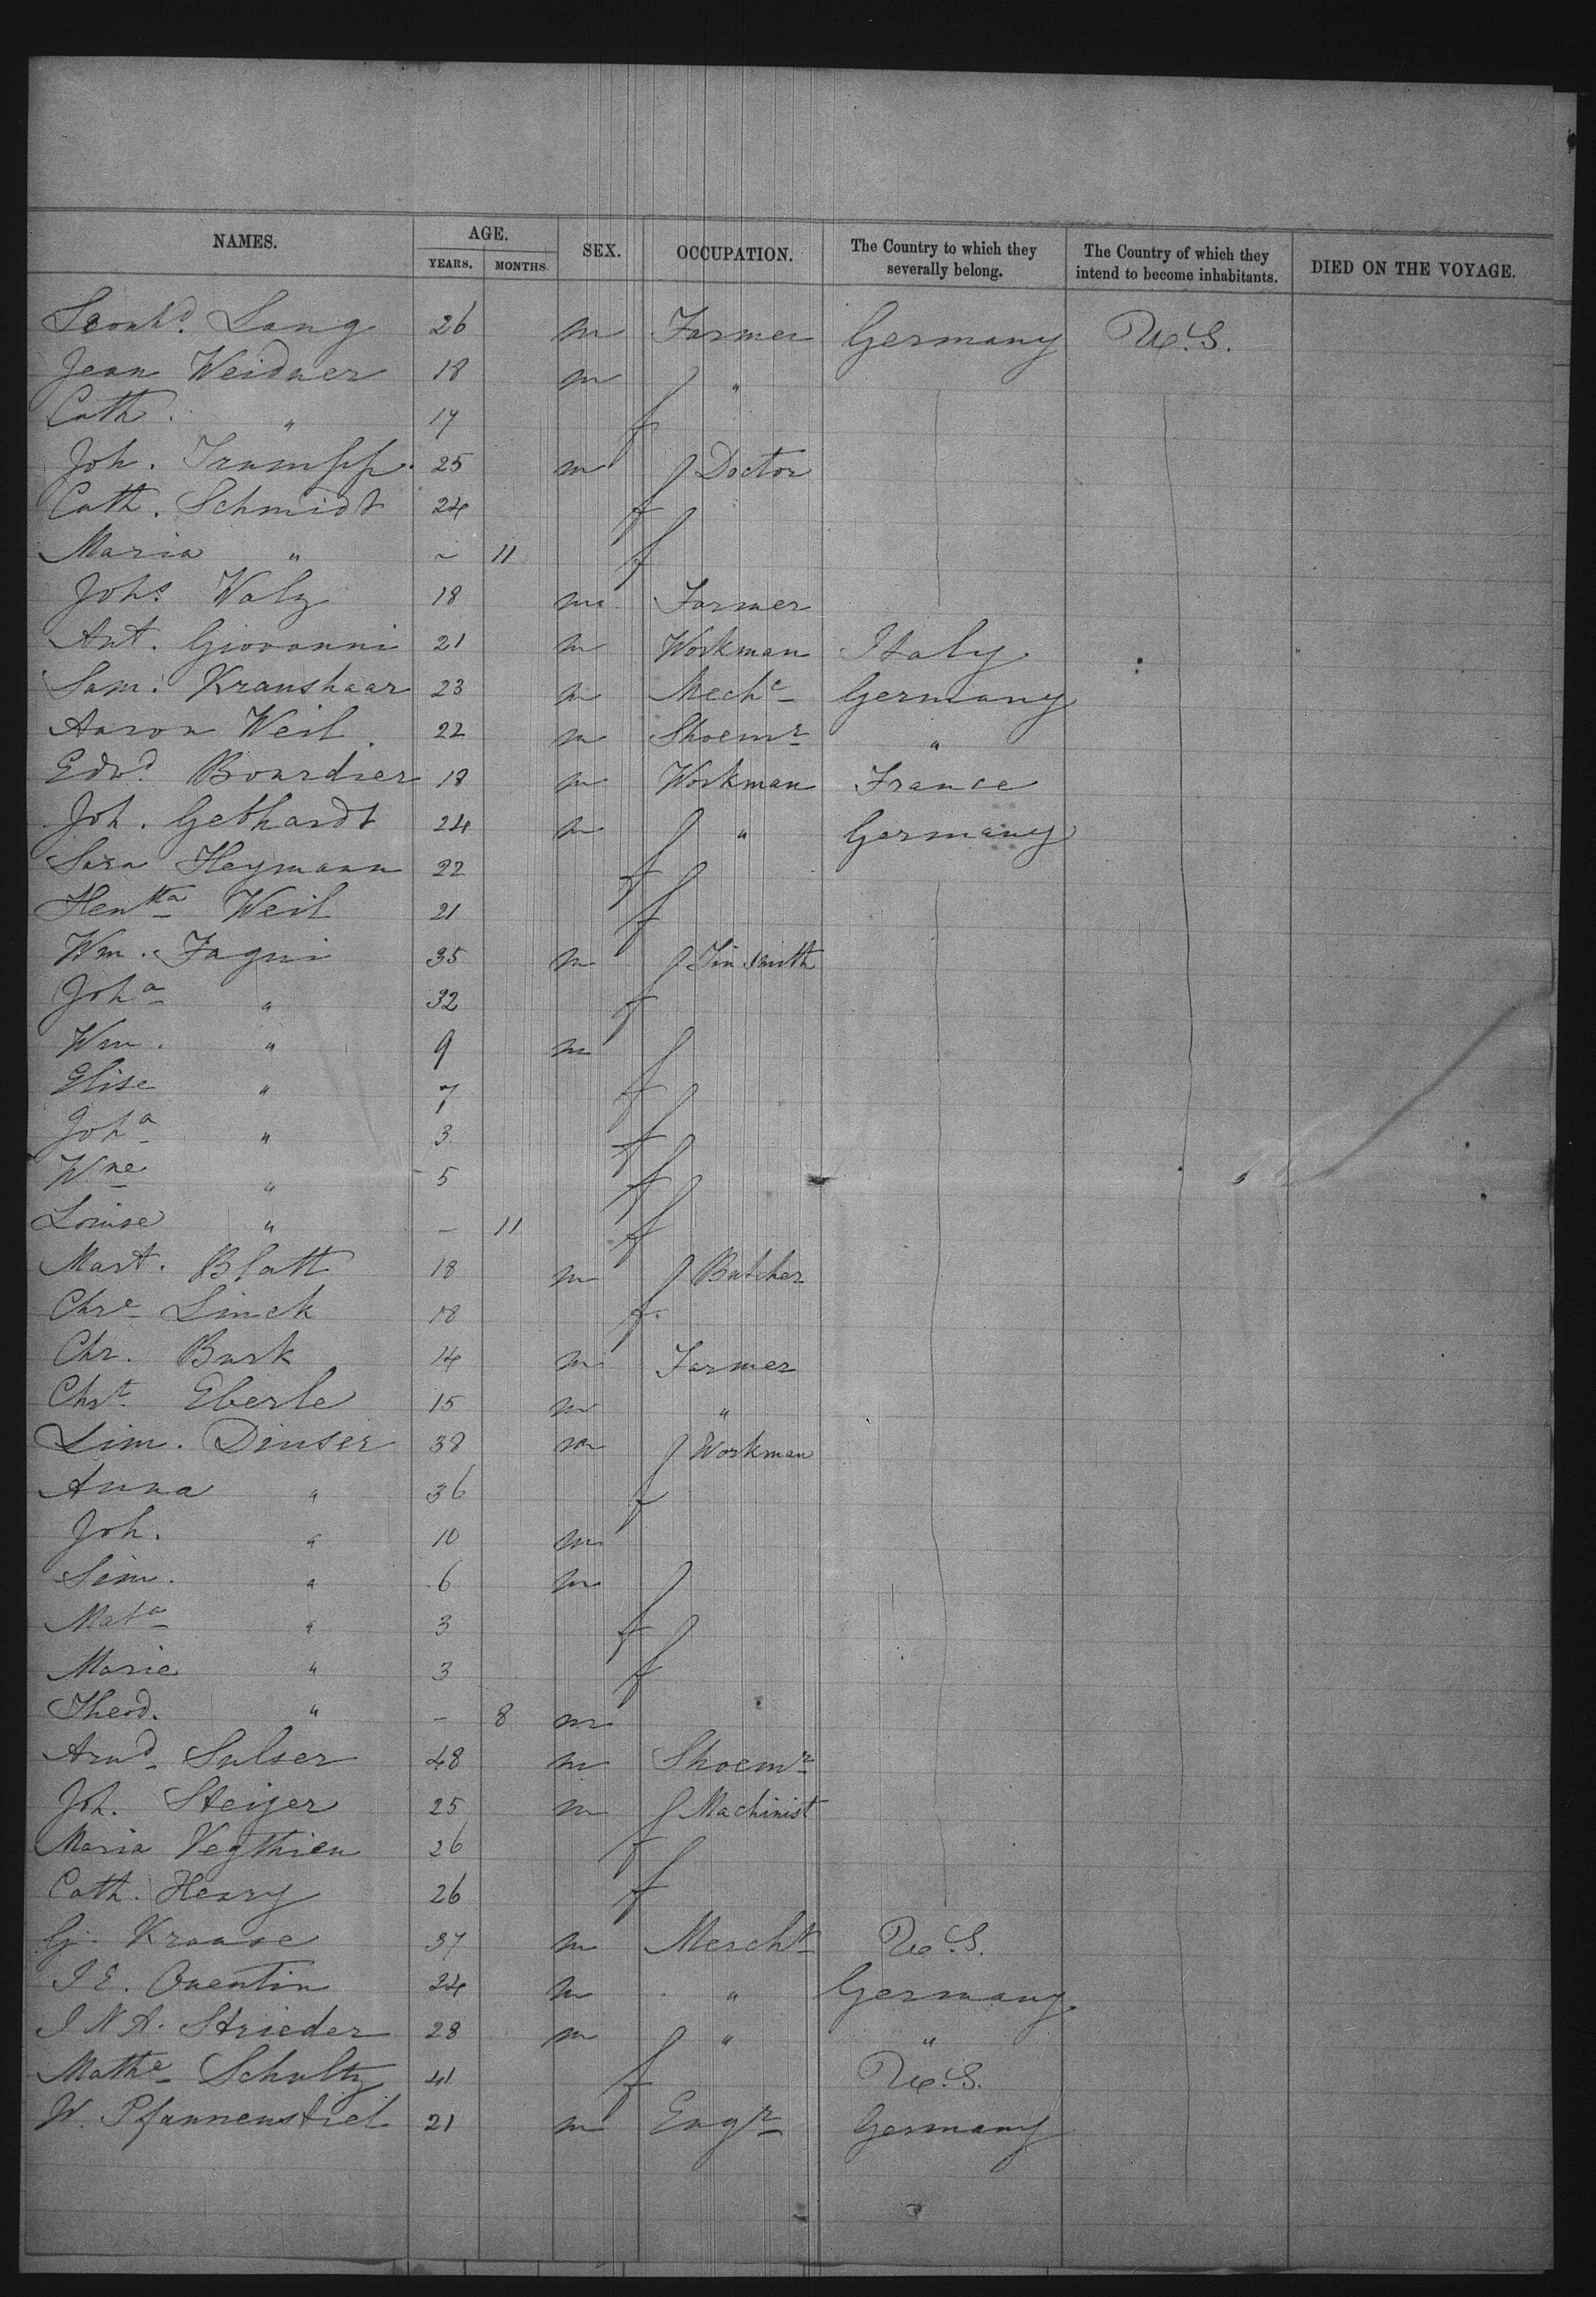 NAMES. AGE. SEX. OCCUPATION. The Country to which they severally belong. The Country of which they intend to become inhabitants. DIED ON THE VOYAGE.
YEARS. MONTHS.
Leonhd. Lang 26 m Farmer Germany U.S.
Jean Weidner 18 m "
Cath. " 17 f
Joh. Trumpp. 25 m Doctor
Cath. Schmidt 24 f
Maria " ~ 11 f
Johs Walz 18 m Farmer
Ant. Giovanni 21 m Workman Italy
Sam. Kraushaar 23 m Mechc Germany
Aaron Weil 22 m Shoemr "
Edwd. Bourdier 18 m Workman France
Joh. Gebhardt 24 m " Germany
Sara Heymann 22 f
Hentta Weil 21 f
Wm. Fagni 35 m Tinsmith
Joha " 32 f
Wm. " 9 m
Elise " 7 f
Joha " 3 f
Wne " 5 f
Louise " – 11 f
Mart. Blatt 18 m Butcher
Chre Linck 18 f.
Chr. Burk 14 m Farmer
Chrt Eberle 15 m "
Sim. Dinser 38 m Workman
Anna " 36 f
Joh. " 10 m
Sim. " 6 m
Mata " 3 f
Marie " 3 f
Theod. " – 8 m
Arnd Sulser 48 m Shoemr
Joh. Steijer 25 m Machinist
Maria Vegthien 26 f
Cath. Henry 26 f
G. Krause 37 m Mercht U.S.
I E. Quentin 24 m " Germany
I N A. Strieder 28 m " "
Mathe Schultz 41 f U.S.
W. Pfannenstiel 21 m Engr Germany